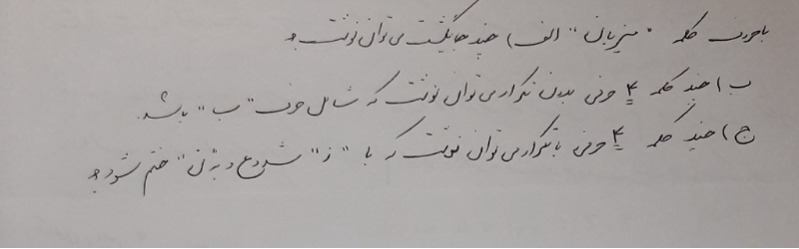 با حروف کلمه "میزبان" الف) چند جایگشت می‌توان نوشت؟
ب) چند کلمه ۴ حرفی بدون تکرار می‌توان نوشت که شامل حرف "ب" باشد.
ج) چند کلمه ۴ حرفی با تکرار می‌توان نوشت که با "ز" شروع و به "ن" ختم شود؟